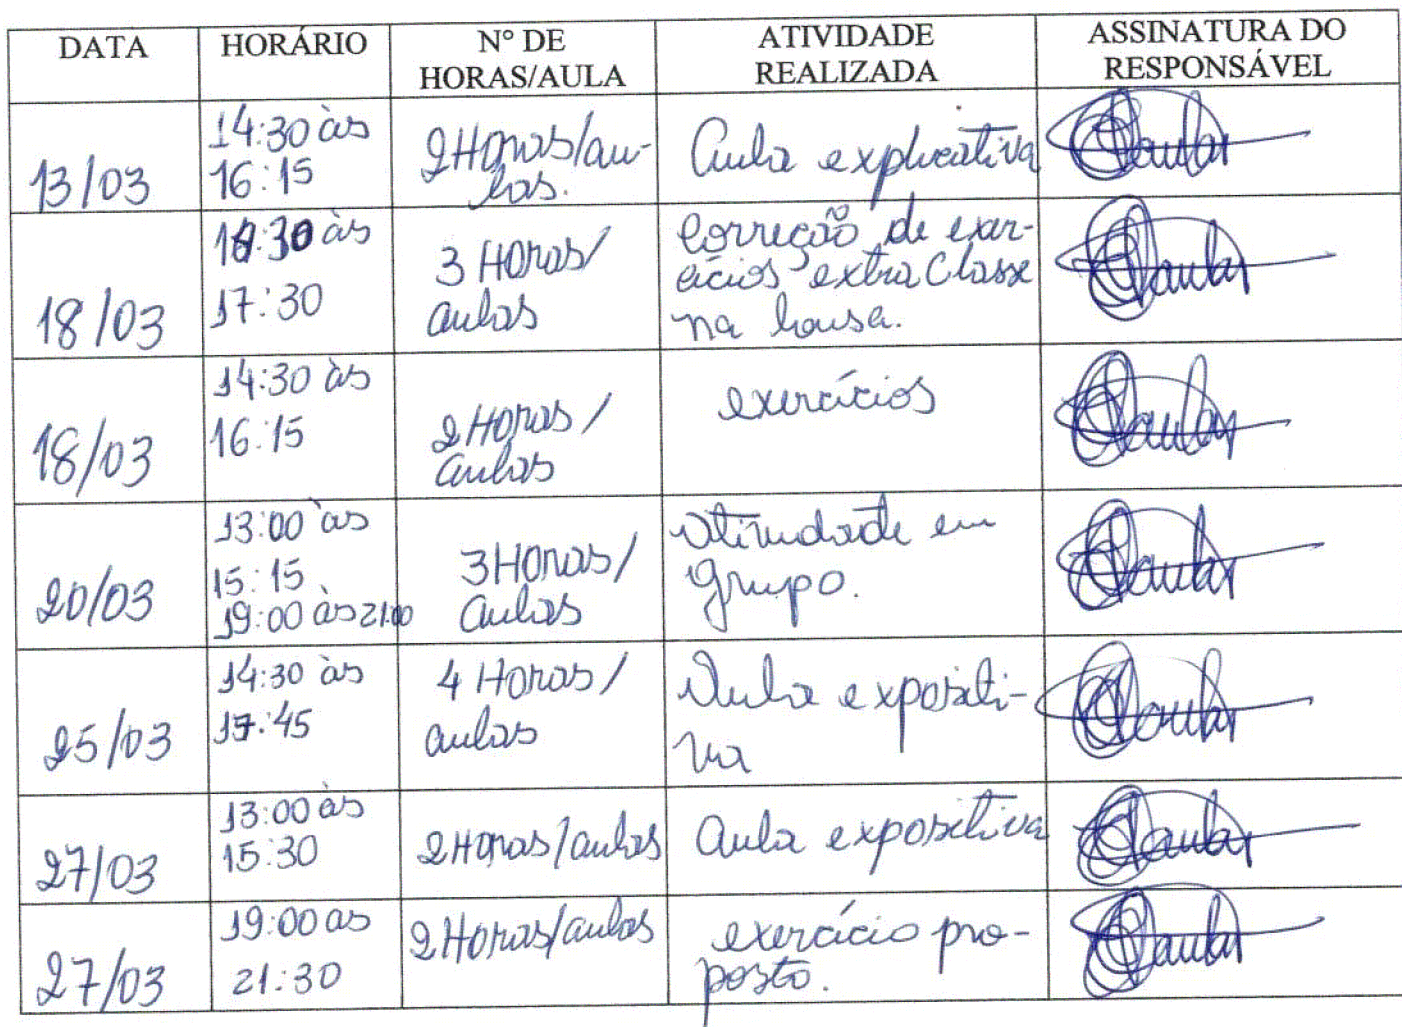 DATA HORÁRIO Nº DE HORAS/AULA ATIVIDADE REALIZADA ASSINATURA DO RESPONSÁVEL
13/03
14:30 às
16:15
2 Horas/au-
las.
Aula explicativa
18/03
:30 às
17:30
3 Horas/
aulas
Correção de exer-
cícios extra Classe
na lousa.
18/03
14:30 às
16:15
2 Horas/
aulas
exercícios
20/03
13:00 às
15:15
19:00 às 21:00
3 Horas/
aulas
Atividade em
grupo.
25/03
14:30 às
17:45
4 Horas/
aulas
Aula expositi-
va
27/03
13:00 às
15:30
2 Horas/aulas
Aula expositiva
27/03
19:00 as
21:30
2 Horas/aulas
exercício pro-
posto.